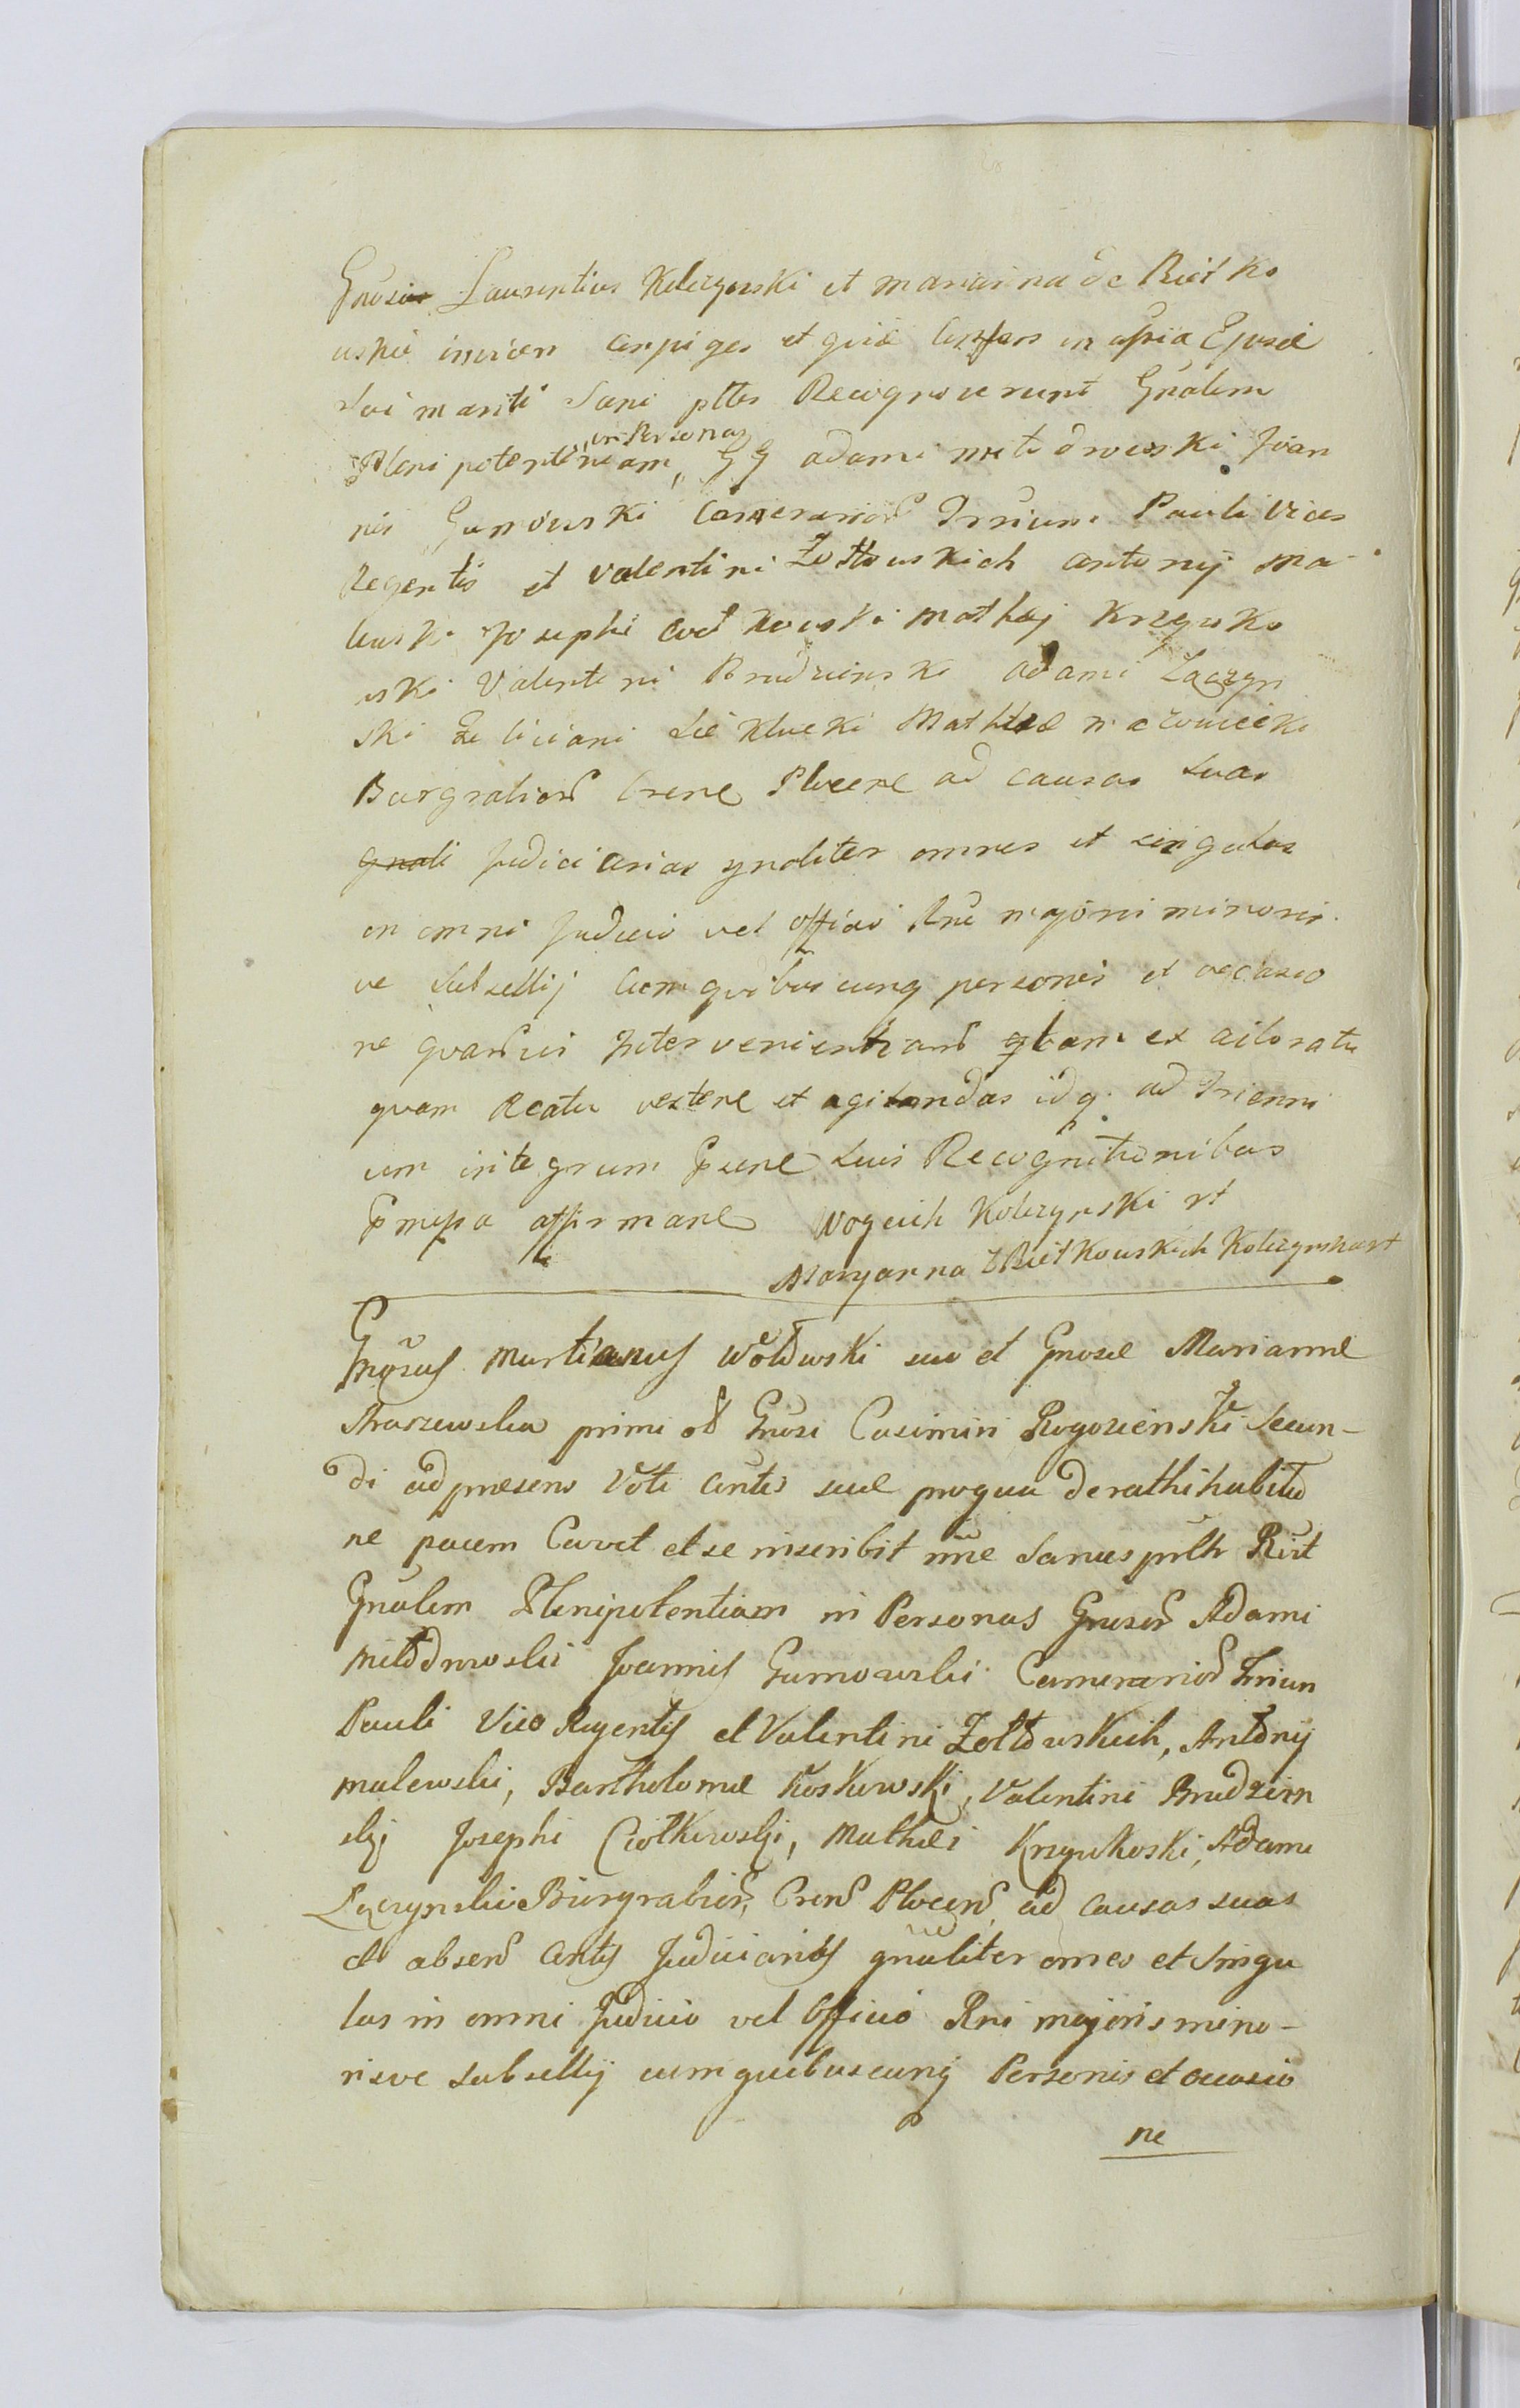 Gnosi Laurentius Kolczynski et Marianna de Rutko
wskie invicem conjuges et quid consors in assia Ejusd
sui mariti Sani pltes Recognoverunt Gnalem
Plenipotentiam in Personas GG Adami Młodrowski Joan
nis Gumowski Camerarior Trrium Pauli Vices
Regentis et Valentini Zołtowskich Antonij Ma
lewski Josephi Ciołkowski Mathej Krzywko
wski Valentini Brudzienski Adami Laczyn
ski Feliciani Mathiae
Burgrabior Crene Plocene ad causas suas
gnali Judiciarias gnaliter omnes et singulas
in omni Judicio vel officio Rni majoris minoris
ve Subsellij cum quibuscunq personis et occasio
ne quarumvis Intervenientiarum qtam ex actoratu
quam Reatu vertene et agitandas idq ad Trienni
um integrum psene suis Recognitionibus
pmissa affirmane Woyciech Kolczynski rt
Maryanna z Rutkowskich Kolczynska rt
Gnosus Martianus Wołowski suo et Gnosae Mariannae
Straszewska primi et Gnosi Casimiri Rogozienski secun-
di ad praesens Voti cntis suae pro qua de rathihabitio
ne pacem Cavet et se inscribit nne Sanus pnltr Rcit
Gnalem Plenipotentiam in Personas Gnosor Adami
Młodrowski Joannis Gumowski Camerarior Trrium
Pauli Vice Regentis et Valentini Zołtowskich, Antonij
Malewski, Bartholomae Koskowski, Valentini Brudzien
skj Josephi Ciołkowskj, Mathei Krzywkoski, Adami
Laczynski Burgrabior, Cren Plocen ad causas suas
et absen cntis Judiciarias gnaliter omes et Singu
las in omni Judicio vel Officio Rni majoris mino-
risve subsellij cum quibuscunq Personis et occasio
ne